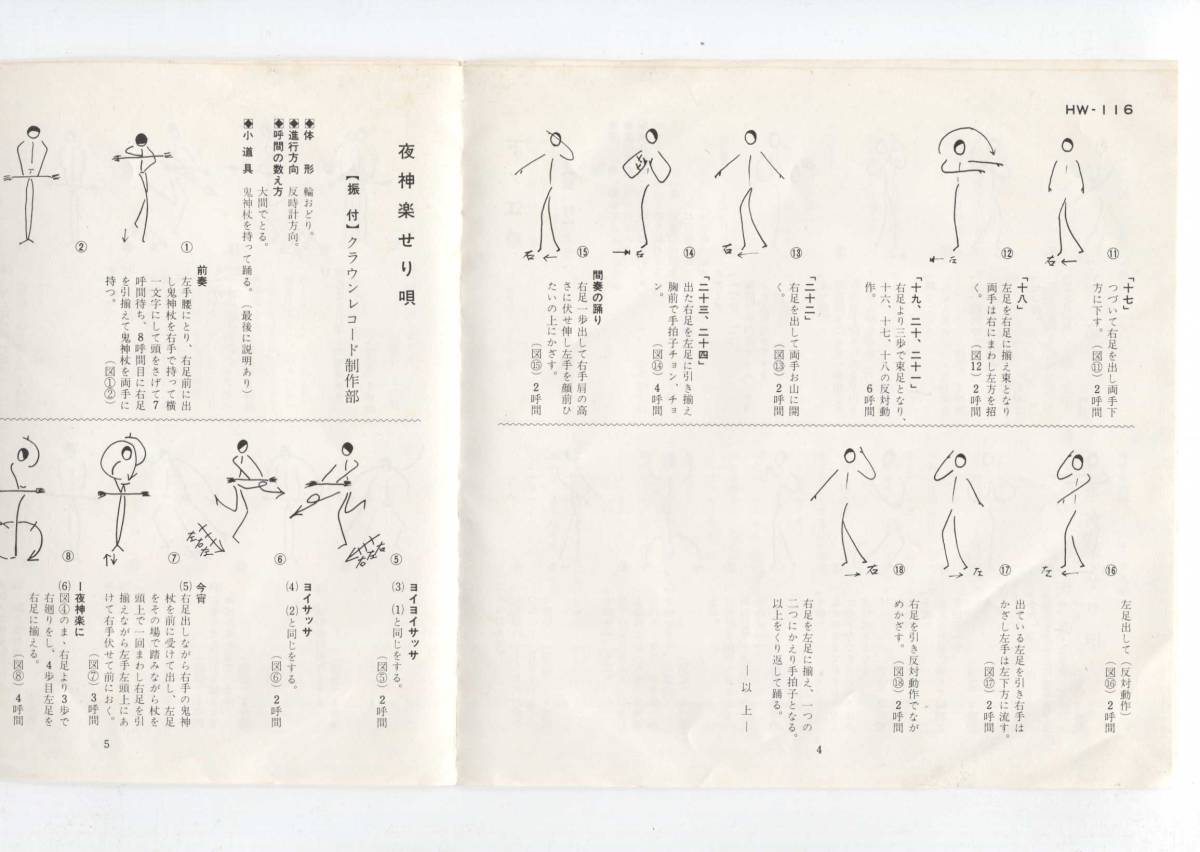 HW-116
⑪
「十七」
つづいて右足を出し両手下
方に下す。
(図⑪)2呼間
右
⑫
「十八」
左足を右足に揃え束となり
両手は右にまわし左方を招
く。
(図12)2呼間
左
「十九、二十、二十一」
右足より三歩で束足となり、
十六、十七、十八の反対動
作。
6呼間
⑬
「二十二」
右足を出して両手お山に開
く。
(図⑬)2呼間
右
⑭
「二十三、二十四」
出た右足を左足に引き揃え
胸前で手拍子チョン、チョ
ン。
(図⑭)4呼間
⑮
間奏の踊り
右足一歩出して右手肩の高
さに伏せ伸し左手を顔前ひ
たいの上にかざす。
(図⑮)2呼間
右
⑯
左足出して(反対動作)
(図⑯)2呼間
左
⑰
出ている左足を引き右手は
かざし左手は左下方に流す。
(図⑰)2呼間
左
⑱
右足を引き反対動作でなが
めかざす。
(図⑱)2呼間
右
右足を左足に揃え、一つの
二つにかえり手拍子となる。
以上をくり返して踊る。
―以上―
4
夜神楽せり唄
【振付】クラウンレコード制作部
◆体形 輪おどり。
◆進行方向 反時計方向。
◆呼間の数え方
大間でとる。
◆小道具 鬼神杖を持って踊る。(最後に説明あり)
①
前奏
左手腰にとり、右足前に出
し鬼神杖を右手で持って横
一文字にして頭をさげて7
呼間待ち、8呼間目に右足
を引揃えて鬼神杖を両手に
持つ。
(図①②)
②
⑤
ヨイヨイサッサ
(3) (1)と同じをする。
(図⑤)2呼間
右左右
⑥
ヨイサッサ
(4) (2)と同じをする。
(図⑥)2呼間
左右左
⑦
今宵
(5)右足出しながら右手の鬼神
杖を前に受けて出し、左足
をその場で踏みながら杖を
頭上で一回まわし右足を引
揃えながら左手左頭上にあ
けて右手伏せて前におく。
(図⑦)3呼間
⑧
―夜神楽に
(6)図④のまゝ右足より3歩で
右廻りをし、4歩目左足を
右足に揃える。
(図⑧)4呼間
5